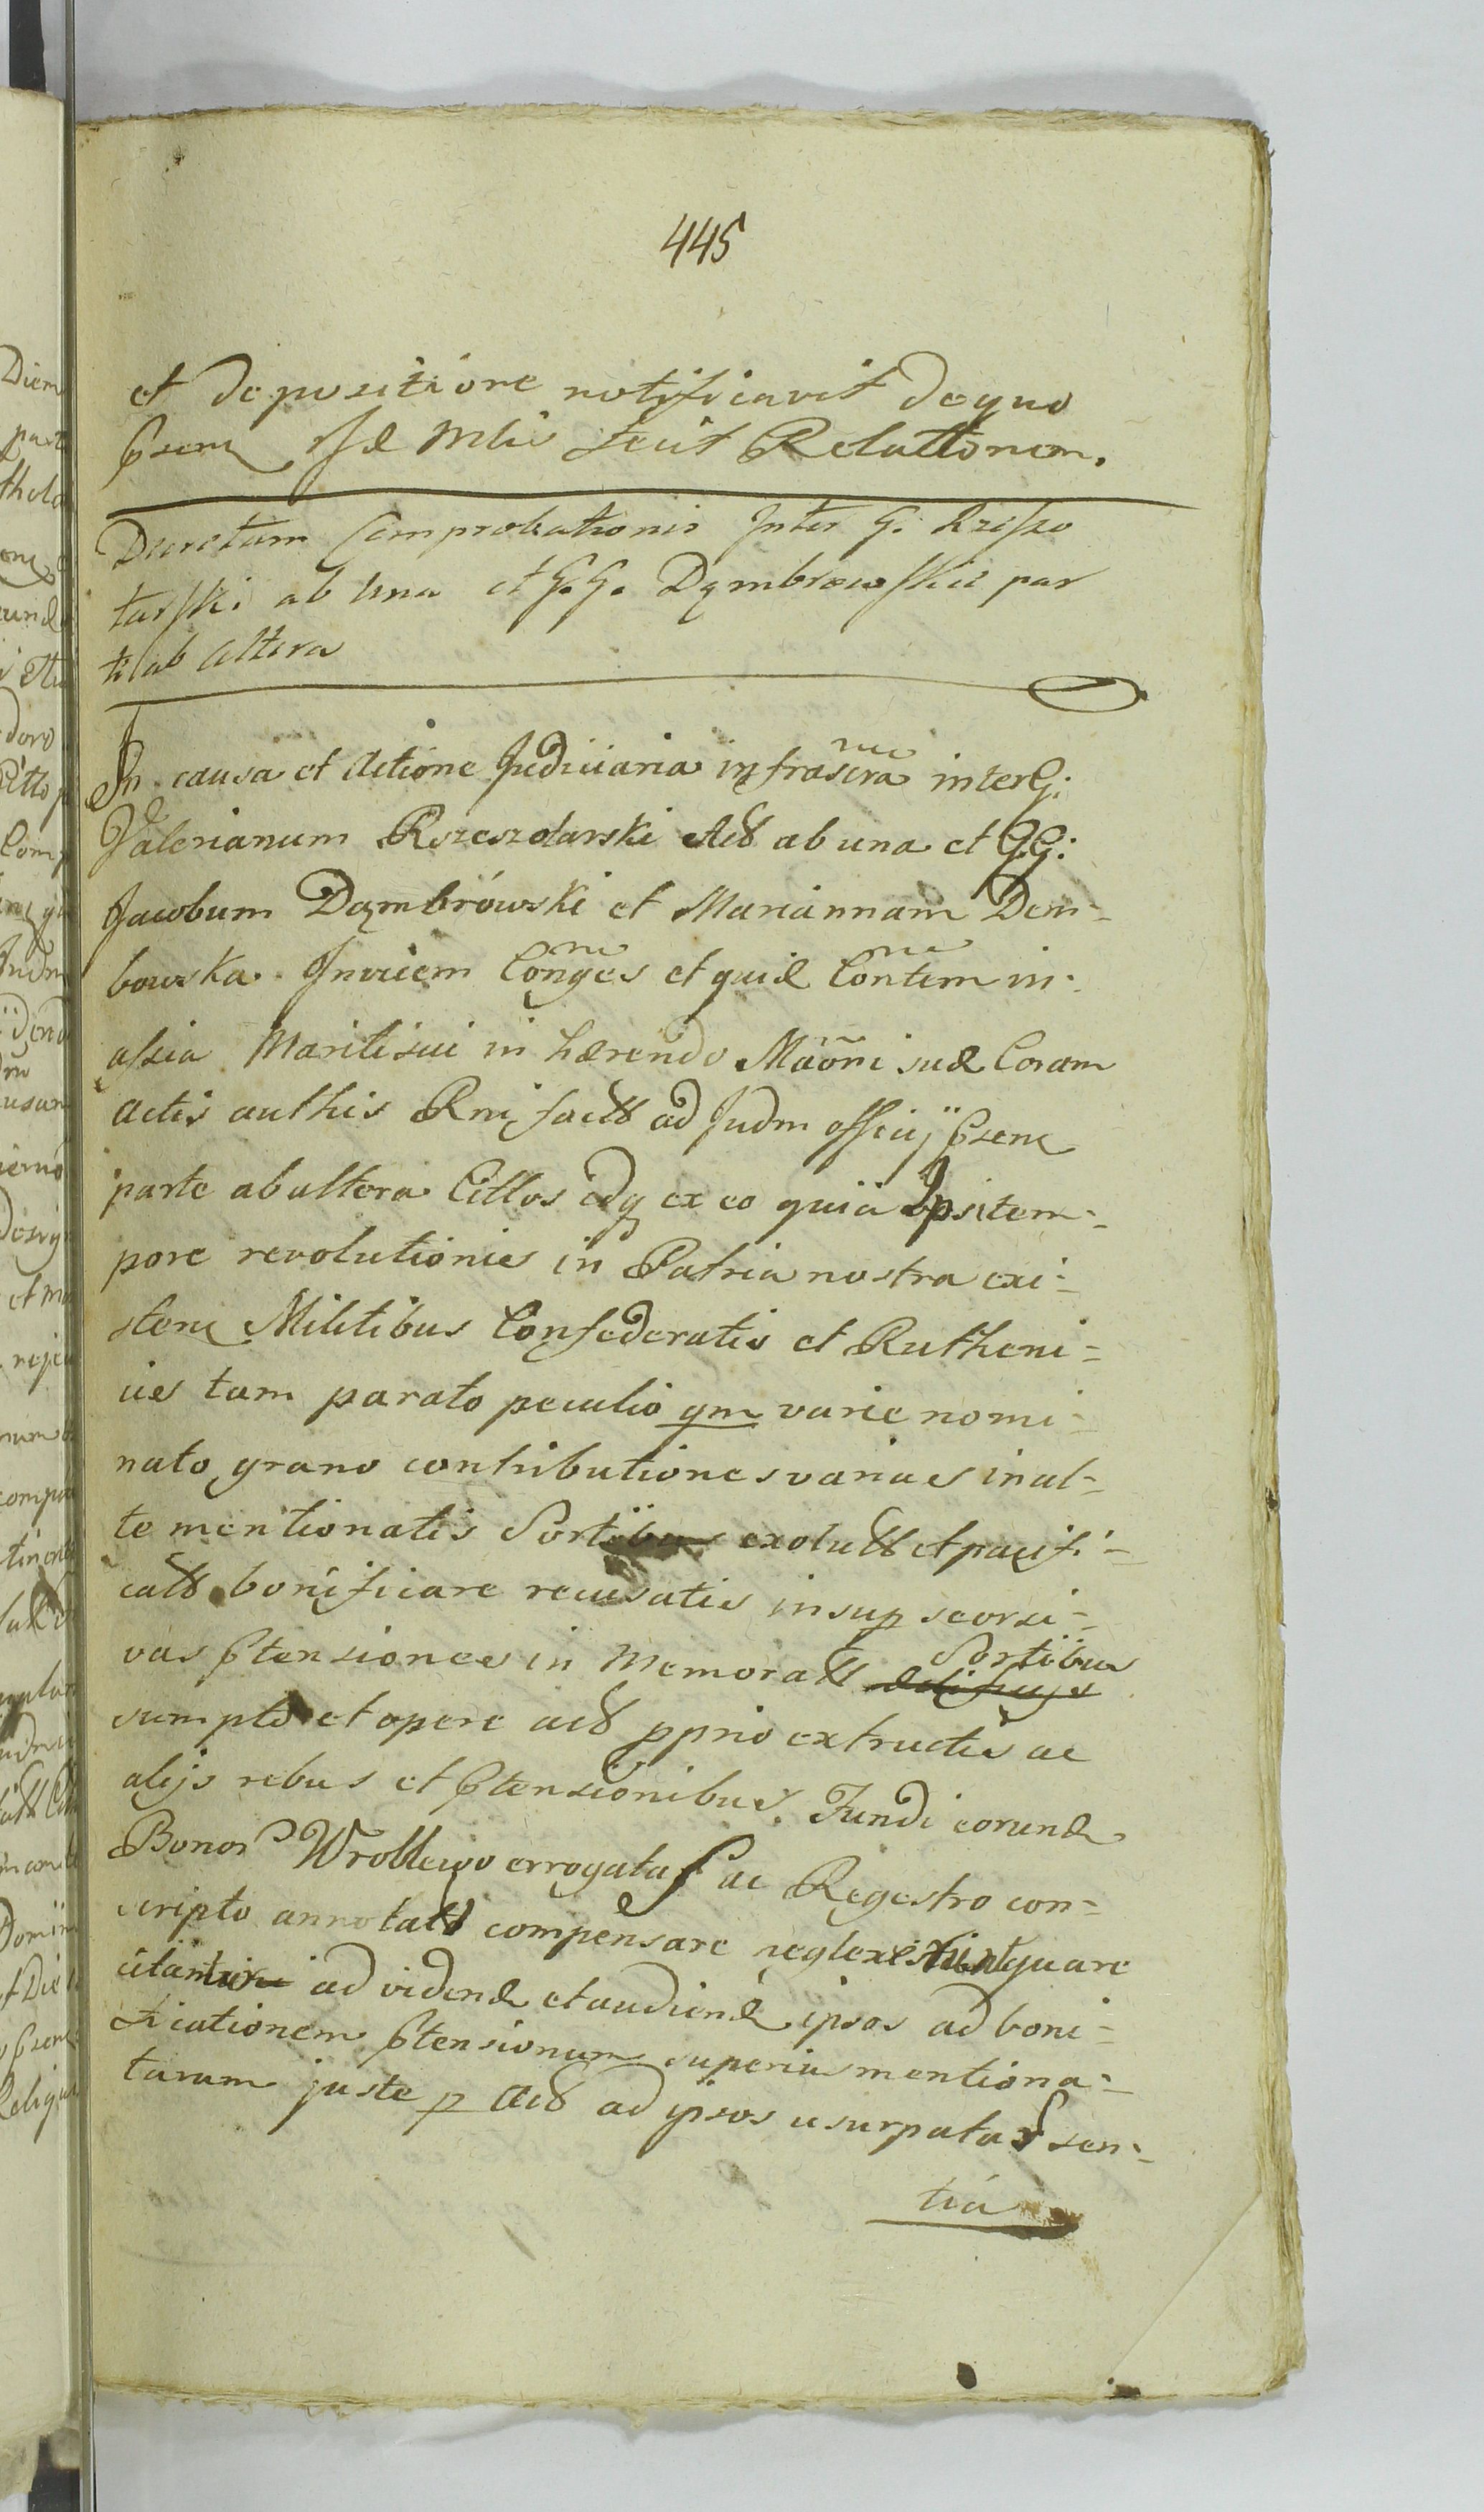 445
et depositione notificavit dequo
pram Jd Mlis fecit Relationem.
Decretum Comprobationis Inter G. Rzeszo
tarski ab una et G.G. Dąmbrowskie par
te ab altera
In causa et Actione Judiciaria infrascra inter G:
Valerianum Rzeszotarski Act ab una et GG:
Jacobum Dąmbrowski et Mariannam Dem-
bowska Invicem Conges et quid Contem in
assia Maritisui in hærendo Maoni suæ Coram
Actis authis Rni fact ad Judm officij Psenc
parte abaltera Cittos idq ex eo quia Ipsi tem-
pore revolutionis in Patria nostra exi-
sten Militibus Confederatis et Rutheni-
cis tam parato peculio qm varie nomi-
nato grano contributiones varias inal-
te mentionatis Sortibus exolutt et pacifi-
catt bonificare recusatis insup seorsi-
vas Ptensiones in Memoratt Sortibus
sumpto et opere act pprio extructis ac
alijs rebus et Ptensionibus Fundi corund
Bonor Wroblewo errogatas ac Regestro con-
scripto annotatt compensare neglexerunt quare
citantur ad vidend et audiend ipsos ad boni-
ficationem Ptensionum superius mentiona-
tarum juste p Act ad ipsos usurpatas sen-
tia